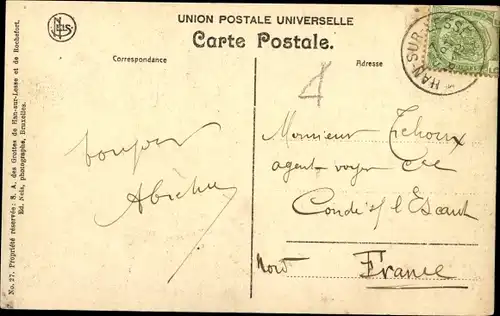 UNION POSTALE UNIVERSELLE
Carte Postale.
Correspondance
Adresse
HAN-SUR-
bonjour
Monsieur
agent voyer
Condé s/ l'Escaut
Nord
France
No. 27. Propriété réservée: S. A. des Grottes de Han-sur-Lesse et de Rochefort.
Ed. Nels, photographe, Bruxelles.